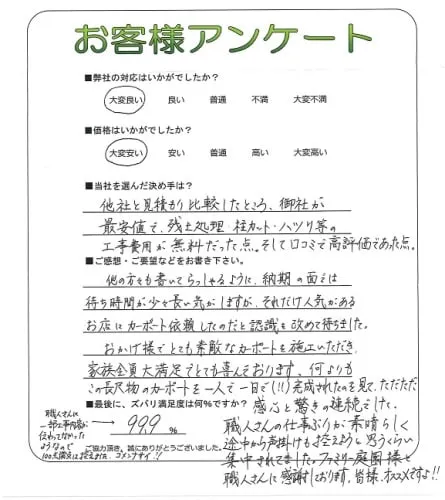 お客様アンケート
■弊社の対応はいかがでしたか?
大変良い 良い 普通 不満 大変不満
■価格はいかがでしたか?
大変安い 安い 普通 高い 大変高い
■当社を選んだ決め手は?
他社と見積もり比較したところ、御社が
最安値で、残土処理 柱カット・ハツリ等の
工事費用が無料だった点。そして口コミで高評価であった点。
■ご感想・ご要望などをお書き下さい。
他の方々も書いてらっしゃるように、納期の面では
待ち時間が少々長い気がしますが、それだけ人気がある
お店にカーポート依頼したのだと認識を改めて待ちました。
おかげ様でとても素敵なカーポートを施工いただき
家族全員大満足でとても喜んでおります。何よりも
この長尺物のカーポートを一人で一日で(!!)完成されたのを見て、ただただ
感心と驚きの連続でした。
■最後に、ズバリ満足度は何%ですか?
99.9 %
職人さんの仕事ぶりが素晴らしく
途中から声掛けも控えようと思うくらい
集中されてました。ファミリー庭園様と
職人に感謝しております。皆様、オススメですよ!!
職人さんに
一部工事内容が
伝わってなかった
ようなので
100点満点は控えました。ゴメンナサイ!!
ご協力頂き、誠にありがとうございました。